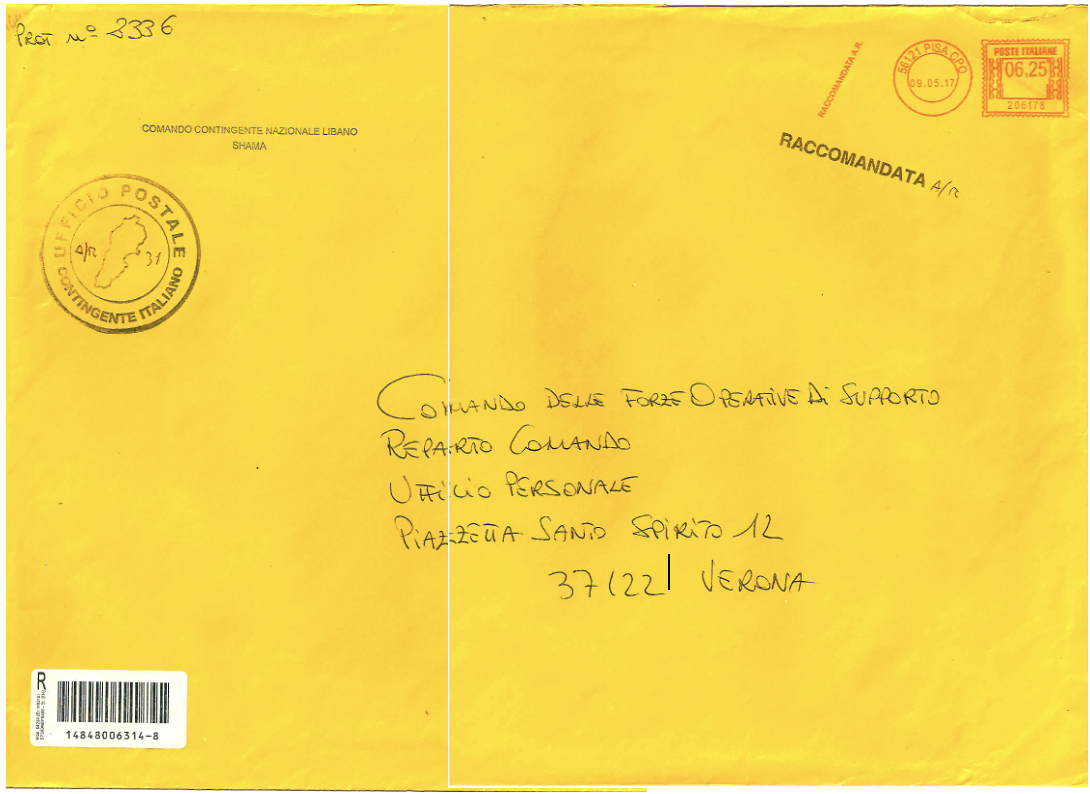 Prot nº 8336
COMANDO CONTINGENTE NAZIONALE LIBANO
SHAMA
UFFICIO POSTALE
A/R 31
CONTINGENTE ITALIANO
RACCOMANDATA A.R.
56121 PISA CPO
09.05.17
POSTE ITALIANE
06,25
206178
RACCOMANDATA A/R
COMANDO DELLE FORZE OPERATIVE Di SUPPORTO
REPARTO COMANDO
UFFiCiO PERSONALE
PiAZZETTA SANTO SPiRiTO 12
37122 VERONA
R
14848006314-8